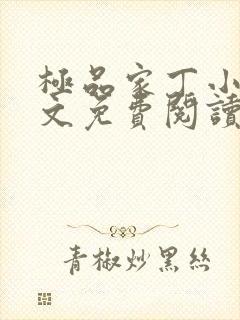 極品家丁小
文免費閱讀
青椒炒黑絲